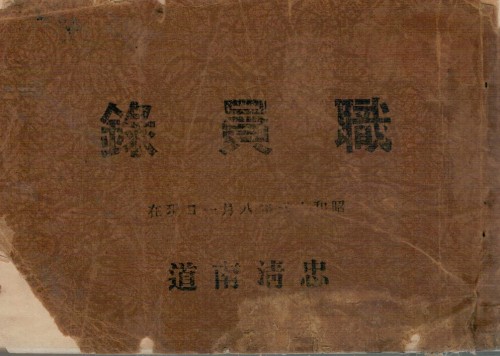 職員錄
昭和十 年八月一日現在
忠淸南道